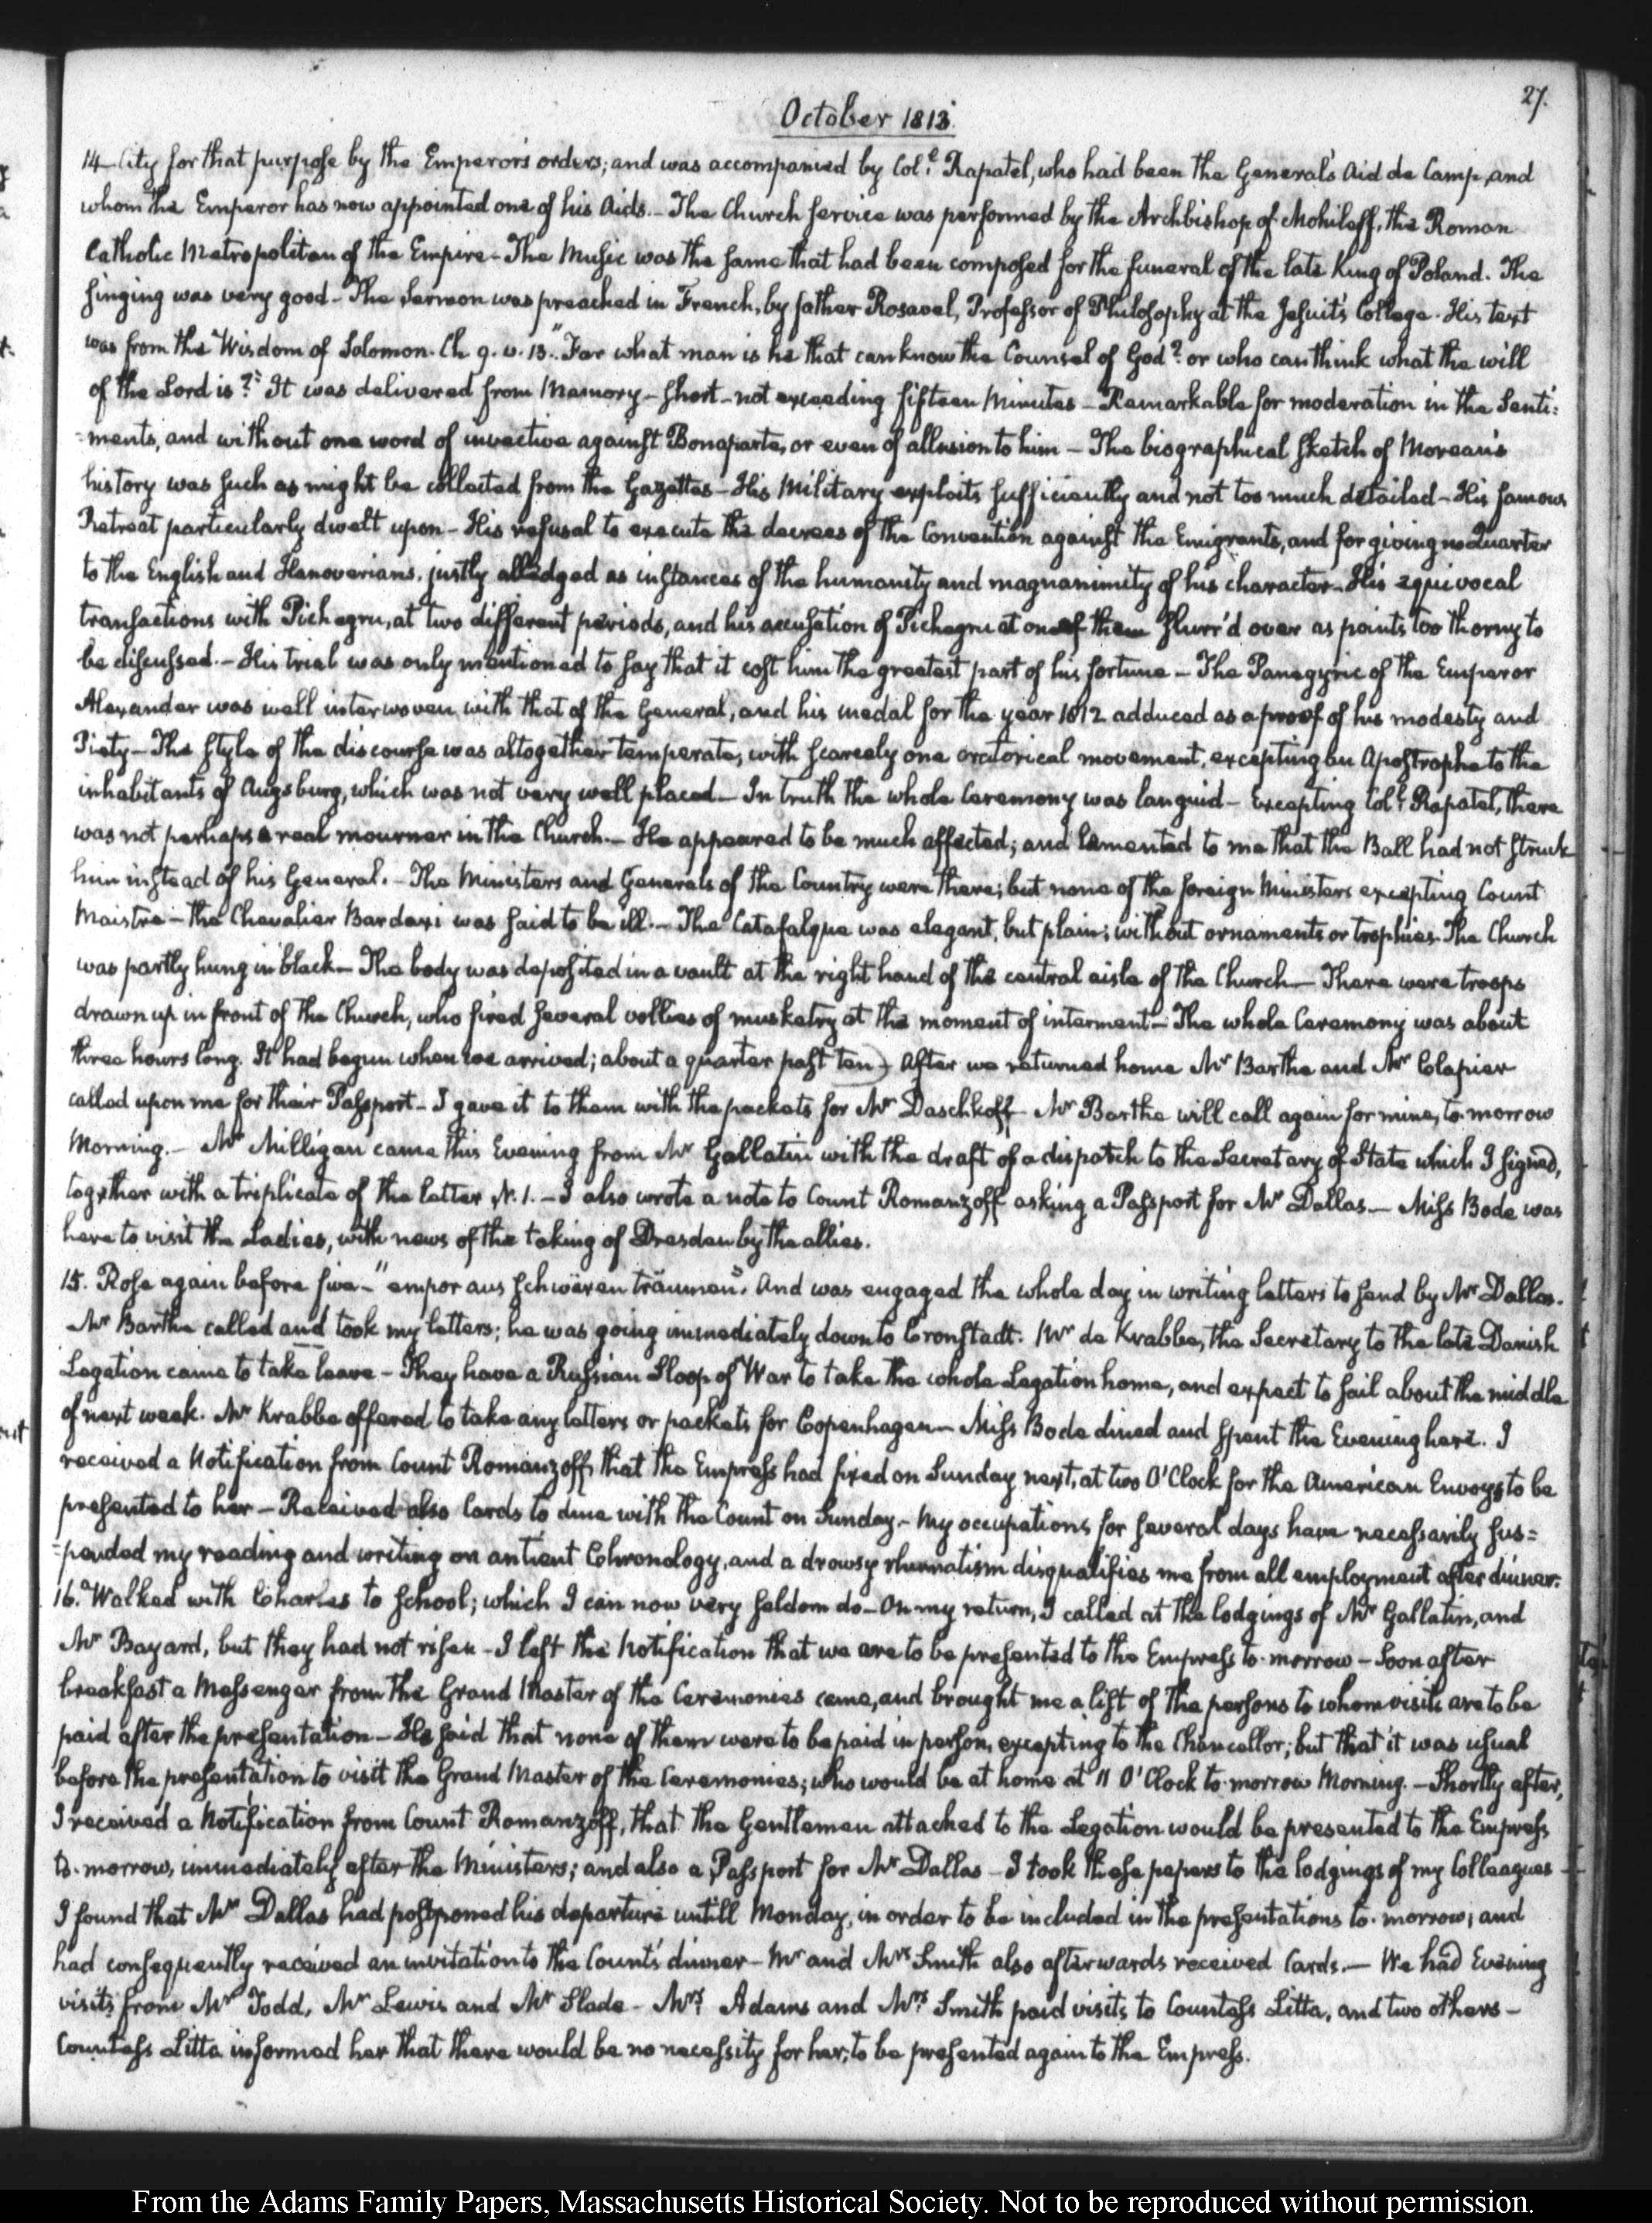 27.
October 1813.
14— City for that purpose by the Emperor's orders; and was accompanied by Col.l Rapatel, who had been the General's Aid de Camp, and
whom the Emperor has now appointed one of his Aids.— The Church service was performed by the Archbishop of Mohileff, the Roman
Catholic Metropolitan of the Empire— The Music was the same that had been composed for the funeral of the late King of Poland. The
singing was very good— The Sermon was preached in French, by father Rosavel, Professor of Philosophy at the Jesuit's College. His text
was from the Wisdom of Solomon. Ch. 9. v. 13. "For what man is he that can know the Counsel of God? or who can think what the will
of the Lord is?" It was delivered from Memory— short— not exceeding fifteen Minutes— Remarkable for moderation in the Senti=
=ments, and without one word of invective against Bonaparte, or even of allusion to him— The biographical sketch of Moreau's
history was such as might be collected from the Gazettes— His Military exploits sufficiently and not too much detailed— His famous
Retreat particularly dwelt upon— His refusal to execute the decrees of the Convention against the Emigrants, and for giving no Quarter
to the English and Hanoverians, justly alledged as instances of the humanity and magnanimity of his character— His equivocal
transactions with Pichegru, at two different periods, and his accusation of Pichegru at one of them slurr'd over as points too thorny to
be discussed.— His trial was only mentioned to say that it cost him the greatest part of his fortune— The Panegyric of the Emperor
Alexander was well interwoven with that of the General, and his medal for the year 1812 adduced as a proof of his modesty and
Piety— The style of the discourse was altogether temperate, with scarcely one oratorical movement, excepting an Apostrophe to the
inhabitants of Augsburg, which was not very well placed— In truth the whole Ceremony was languid— Excepting Col.l Rapatel, there
was not perhaps a real mourner in the Church.— He appeared to be much affected; and lamented to me that the Ball had not struck
him instead of his General.— The Ministers and Generals of the Country were there; but none of the foreign Ministers excepting Count
Maistre— the Chevalier Bardaxi was said to be ill.— The Catafalque was elegant, but plain; without ornaments or trophies. The Church
was partly hung in black— The body was deposited in a vault at the right hand of the central aisle of the Church— There were troops
drawn up in front of the Church, who fired several vollies of musketry at the moment of interment— The whole Ceremony was about
three hours long. It had begun when we arrived; about a quarter past ten) After we returned home Mr Barthe and Mr Clapier
called upon me for their Passport— I gave it to them with the packets for Mr Daschkoff— Mr Barthe will call again for mine, to-morrow
Morning.— Mr Milligan came this Evening from Mr Gallatin with the draft of a dispatch to the Secretary of State which I signed,
together with a triplicate of the letter N. 1.— I also wrote a note to Count Romanzoff asking a Passport for Mr Dallas— Miss Bode was
here to visit the Ladies, with news of the taking of Dresden by the allies.
15. Rose again before five— "empor aus schwëren träumen". And was engaged the whole day in writing letters to send by Mr Dallas.
Mr Barthe called and took my letters; he was going immediately down to Cronstadt. Mr de Krabbe, the Secretary to the late Danish
Legation came to take leave— They have a Russian Sloop of War to take the whole Legation home, and expect to sail about the middle
of next week. Mr Krabbe offered to take any letters or packets for Copenhagen— Miss Bode dined and spent the Evening here. I
received a Notification from Count Romanzoff, that the Empress had fixed on Sunday next, at two O'Clock for the American Envoys to be
presented to her— Received also Cards to dine with the Count on Sunday.— My occupations for several days have necessarily sus=
=pended my reading and writing on antient Chronology, and a drowsy rheumatism disqualifies me from all employment after dinner.
16. Walked with Charles to School; which I can now very seldom do— On my return, I called at the lodgings of Mr Gallatin, and
Mr Bayard, but they had not risen— I left the Notification that we are to be presented to the Empress to-morrow— Soon after
breakfast a Messenger from the Grand Master of the Ceremonies came, and brought me a list of the persons to whom visits are to be
paid after the presentation— He said that none of them were to be paid in person, excepting to the Chancellor; but that it was usual
before the presentation to visit the Grand Master of the Ceremonies; who would be at home at 11 O'Clock to-morrow Morning.— Shortly after,
I received a Notification from Count Romanzoff, that the Gentlemen attached to the Legation would be presented to the Empress
to-morrow, immediately after the Ministers; and also a Passport for Mr Dallas— I took these papers to the lodgings of my Colleagues—
I found that Mr Dallas had postponed his departure untill Monday, in order to be included in the presentations to-morrow; and
had consequently received an invitation to the Count's dinner— Mr and Mrs Smith also afterwards received Cards.— We had Evening
visits from Mr Todd, Mr Lewis and Mr Slade— Mrs Adams and Mrs Smith paid visits to Countess Litta, and two others—
Countess Litta informed her that there would be no necessity for her, to be presented again to the Empress.
From the Adams Family Papers, Massachusetts Historical Society. Not to be reproduced without permission.